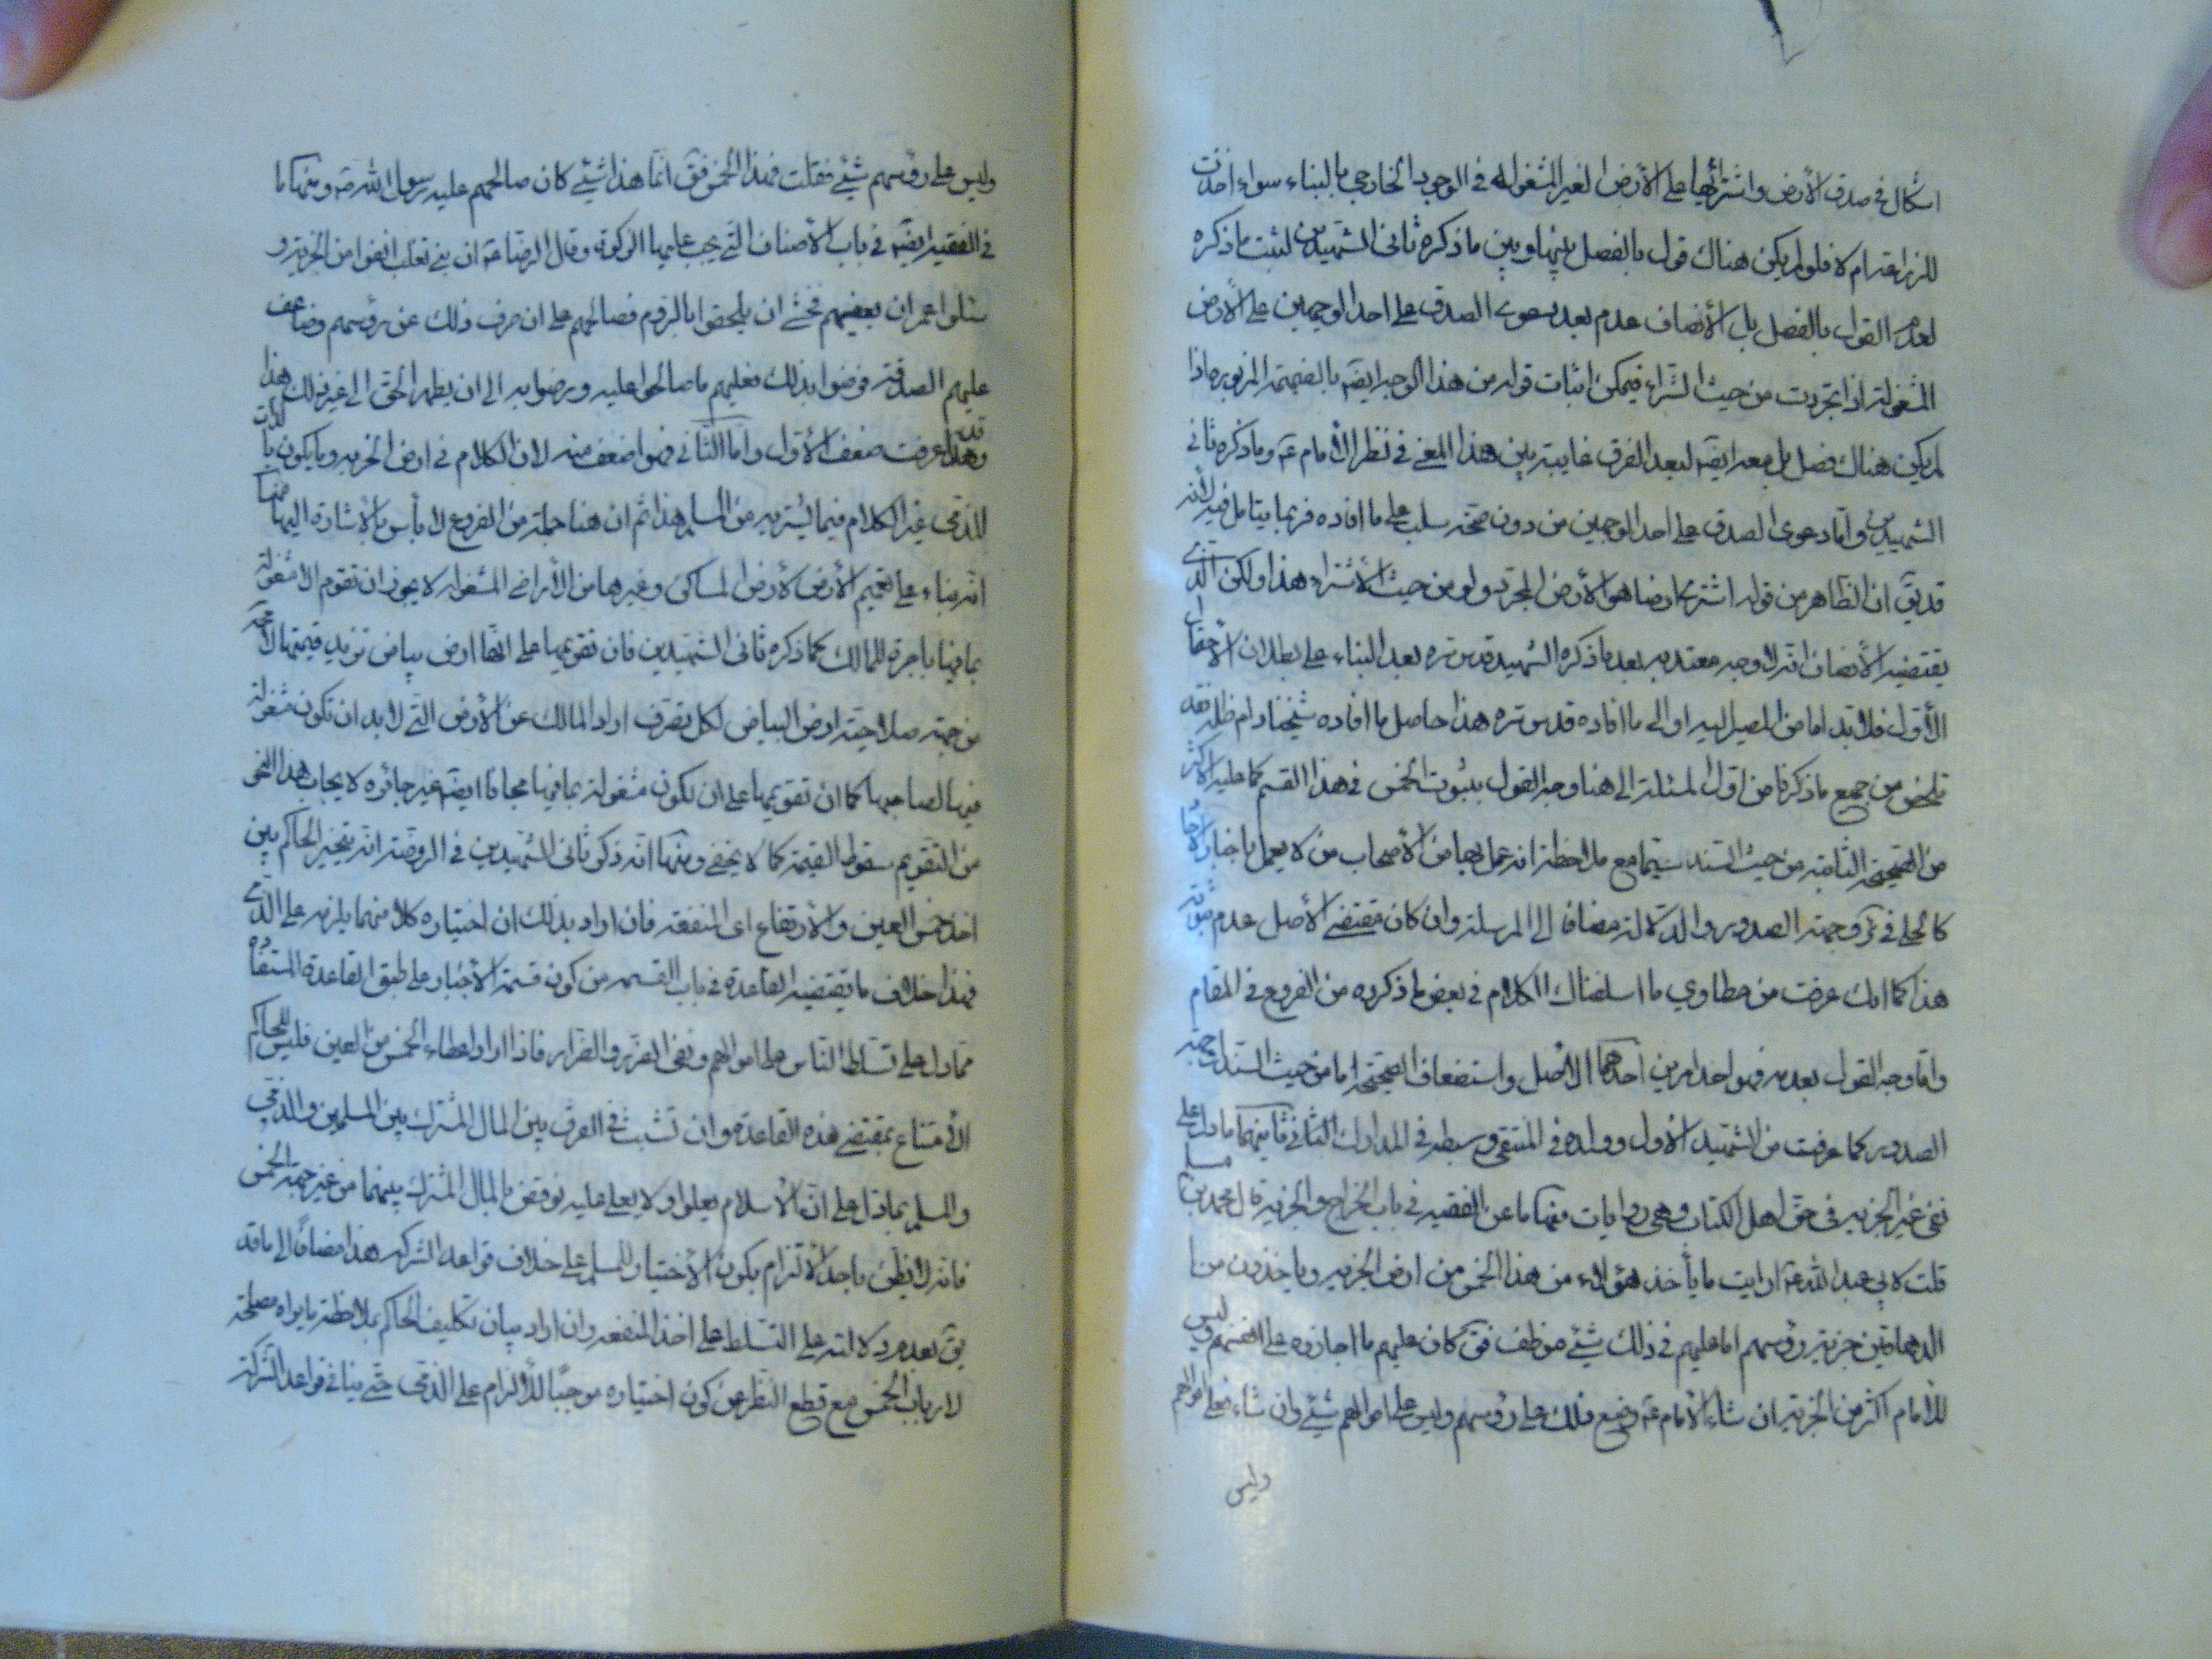 اشكال في صدق الأرض واشترائها على الأرض الغير المشغولة في الوجود الخارجي بالبناء سواء اخذت
للزراعة ام لا فلو لم يكن هناك قول بالفصل بينها وبين ما ذكره ثاني الشهيدين لثبت ما ذكره
لعدم القول بالفصل بل الأنصاف عدم بعد دعوى الصدق على احد الوجهين على الأرض
المشغولة اذا تجردت من حيث الشراء فيمكن اثبات قوله من هذا الوجه ايضَ بالضميمة المزبورة اذا
لم يكن هناك فصل بل معه ايضَ لبعد الفرق غايته بين هذا المعنى في نظر الأمام عَ وما ذكره ثاني
الشهيدين واما دعوى الصدق على احد الوجهين من دون صحة سلب على ما افاده فربما يتامل فيه لأنه
قد يقَ ان الظاهر من قوله اشترى ارضا هو الأرض المجردة ولو من حيث الأشتراء هذا ولكن الذي
يقتضيه الأنصاف انه لا وجه معتد به بعد ما ذكره الشهيد قدس سره بعد البناء على بطلان الأحتمال
الأول فلا بد اما من المصير اليه او الى ما افاده قدس سره هذا حاصل ما افاده شيخنا دام ظله فقد
تلخص من جميع ما ذكرنا من اول المسئلة الى هنا وجه القول بثبوت الخمس في هذا القسم كما عليه الأكثر
من الصحيحة الثابتة من حيث السند سيما مع ملاحظة انه عمل بها من الأصحاب من لا يعمل باخبار الأحاد
كالحلي في ئر وجهة الصدور والدلالة مضافا الى المرسلة وان كان مقتضى الأصل عدم ثبوته
هذا كما انك عرفت من مطاوي ما اسلفناك الكلام في بعض ما ذكروه من الفروع في المقام
واما وجه القول بعدمه فهو احد امرين احدهما الأصل واستضعاف الصحيحة اما من حيث السند او جهة
الصدور كما عرفت من الشهيد الأول وولده في المنتقى وسبطه في المدارك الثاني ثانيهما ما دل على
نفي غير الجزية في حق اهل الكتاب وهي روايات منها ما عن الفقيه في باب الخراج والجزية قال محمد بن مسلم
قلت لابي عبد الله عَ ارايت ما يأخذ هؤلاء من هذا الخمس من ارض الجزية وياخذون من
الدهاقين جزية رؤسهم اما عليهم في ذلك شيئ موظف فقَ كان عليهم ما اجازوه على انفسهم وليس
للأمام اكثر من الجزية ان شاء الأمام عَ وضع ذلك على رؤسهم وليس على اموالهم شيئ وان شاء فعلى اموالهم
وليس
وليس على رؤسهم شيئ فقلت فهذا الخمس فقَ انما هذا شيئ كان صالحهم عليه رسول الله صَ ومنها ما
في الفقيه ايضَ في باب الأصناف التي يجب عليها الزكوة وقال الرضا عَ ان بني تغلب انفوا من الجزية و
سئلوا عمر ان يعفيهم فخشى ان يلحقوا بالروم فصالحهم على ان صرف ذلك عن رؤسهم وضاعف
عليهم الصدقة فرضوا بذلك فعليهم ما صالحوا عليه ورضوا به الى ان يظهر الحق الى غير ذلك هذا
وقد عرفت ضعف الأول واما الثاني فهو اضعف منه لان الكلام في ارض الجزية وما يكون ما
للذمي غير الكلام فيما يشتريه من المسلم هذا ثم ان هنا جملة من الفروع لا بأس بالأشارة اليها منها
انه بناء على تعميم الأرض لأرض المساكن وغيرها من الأراضي المشغولة لا يجوز ان تقوم الا مشغولة
بما فيها باجرة للمالك كما ذكره ثاني الشهيدين فان تقويمها على انها ارض بياض تزيد قيمتها
من جهة صلاحية ارض البياض لكل تصرف اراد المالك عن الأرض التي لا بد ان تكون مشغولة
فيها لصاحبها كما ان تقويمها على ان تكون مشغولة بما فيها مجانا ايضَ غير جائزة لايجاب هذا النحو
من التقويم سقوط القيمة كما لا يخفى ومنها انه ذكر ثاني الشهيدين في الروضة انه يتخير الحاكم بين
اخذ خمس العين والأرتفاع اى المنفعة فان اراد بذلك ان اختياره كلا منهما يلزمه على الذمي
فهذا خلاف ما يقتضيه القاعدة في باب القسمة من كون قسمة الأجبار على طبق القاعدة المستفادة
مما دل على تسلط الناس على اموالهم ونفى الضرر والضرار فاذا اراد اعطاء الخمس من العين فليس للحاكم
الأمتناع بمقتضى هذه القاعدة وان تشبث في الفرق بين المال المشترك بين المسلمين والذمي
والمسلم بما دل على ان الأسلام يعلو ولا يعلى عليه نوقض بالمال المشترك بينهما من غير جهة الخمس
فانه لا يظن باحد الألتزام بكون الأختيار للمسلم على خلاف قواعد الشركة هذا مضافا الى ما قد
يقَ بعدم دلالته على التسلط على اخذ المنفعة وان اراد بيان تكليف الحاكم بملاحظة ما يراه مصلحة
لارباب الخمس مع قطع النظر عن كون اختياره موجبًا للألزام على الذمي حتى ينافي قواعد الشركة